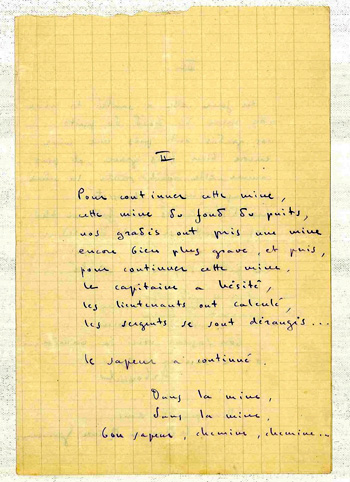 II
Pour continuer cette mine,
cette mine du fond du puits,
nos gradés ont pris une mine
encore bien plus grave, et puis,
pour continuer cette mine,
le capitaine a hésité,
les lieutenants ont calculé,
les sergents se sont dérangés...
le sapeur a continué.
Dans la mine,
dans la mine,
bon sapeur, chemine, chemine...